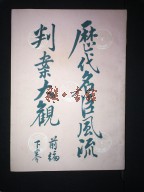 歴代名臣風流
判案大観
前編
下巻